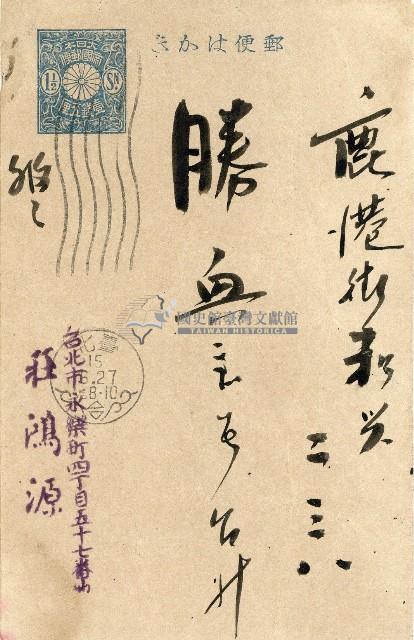 郵便はかき
大日本
帝國郵便
1½ Sn
鹿港街新興
二三八
勝血
台北市永樂町四丁目五十七番地
莊鴻源
臺北
15
.27
8-10
國史館臺灣文獻館
TAIWAN HISTORICA